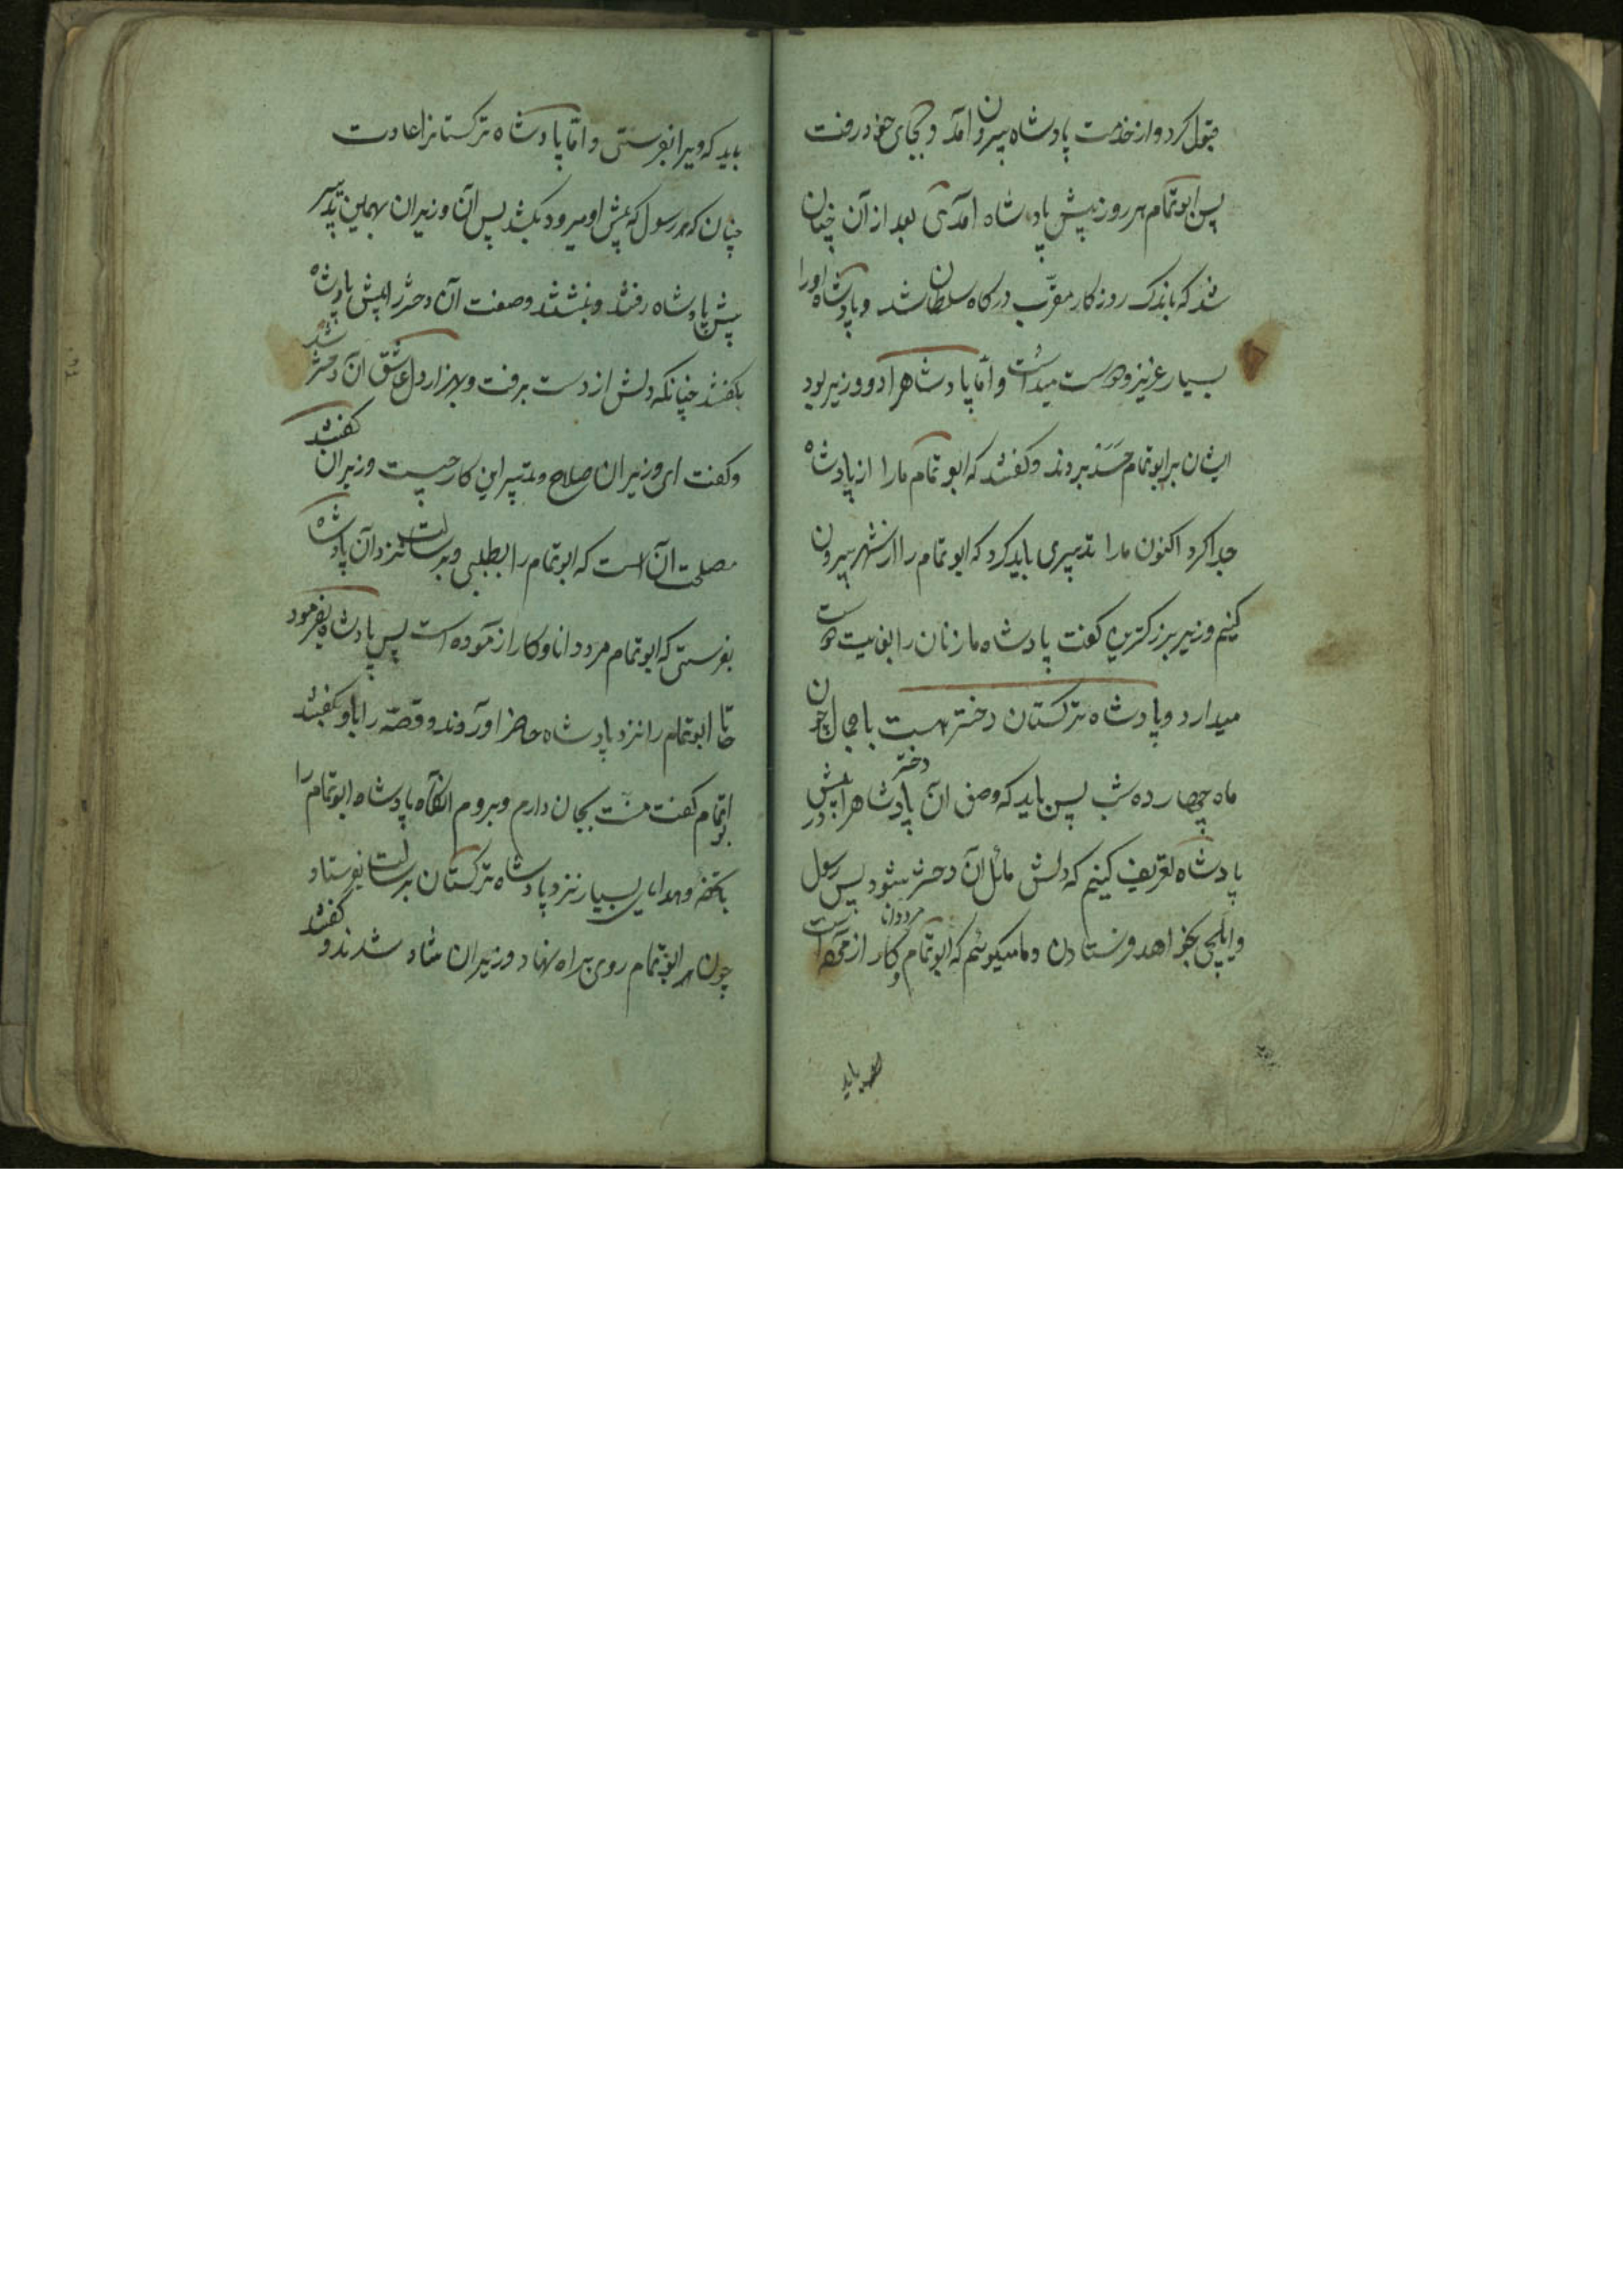 قبول کرد و از خدمت پادشاه بیرون امد و بجای خود رفت
پس ابوتمام هر روز پیش پادشاه امدی بعد از آن چنان
شد که باندک روزکار مقرّب درکاه سلطان شد و پادشاه اورا
بسیار عزیز و دوست میداشت و امّا پادشاهرا دو وزیر بود
ایشان بر ابوتمام حسد بردند و کفتند که ابوتمام مارا از پادشاه
جدا کرد اکنون مارا تدبیری باید کرد که ابوتمام را از شهر بیرون
کنیم وزیر بزرکترین کفت پادشاه ما زنان را بغایت دوست
میدارد و پادشاه ترکستان دختر هست با جمال چون
ماه چهارده شب پس باید که وصف آن دختر پادشاهرا پیش
پادشاه تعریف کنیم که دلش مائل آن دختر بشود پس رسول
و ایلچی بخواهد فرستادن و ما میکوئیم که ابوتمام مرد دانا و کار ازموده است
باید
باید که ویرا بفرستی و امّا پادشاه ترکستانرا عادت
چنان که هر رسول که پیش او میرود بکشد پس آن وزیران بهمین تدبیر
پیش پادشاه رفتند و بنشتند و صفت آن دختر را پیش پادشاه
بکفتند چنانکه دلش از دست برفت و بهزار دل عاشق آن دختر شد
و کفت ای وزیران صلاح و تدبیر این کار چیست وزیران کفتند
مصلحت آن است که ابوتمام را بطلبی و برسالت نزد آن پادشاه
بفرستی که ابوتمام مرد دانا و کار ازموده است پس پادشاه بفرمود
تا ابوتمام را نزد پادشاه حاضر اوردند و قصّه را باو بکفتند
ابوتمام کفت منّت بجان دارم و بروم انکاه پادشاه ابوتمام را
با تحفه و هدایای بسیار نزد پادشاه ترکستان برسالت بفرستاد
چون ابوتمام روی براه نهاد وزیران شاد شدند و کفتند